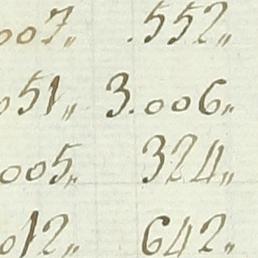 007,, .552,,
051,, 3.006,,
005,, 324,,
012,, 642,,